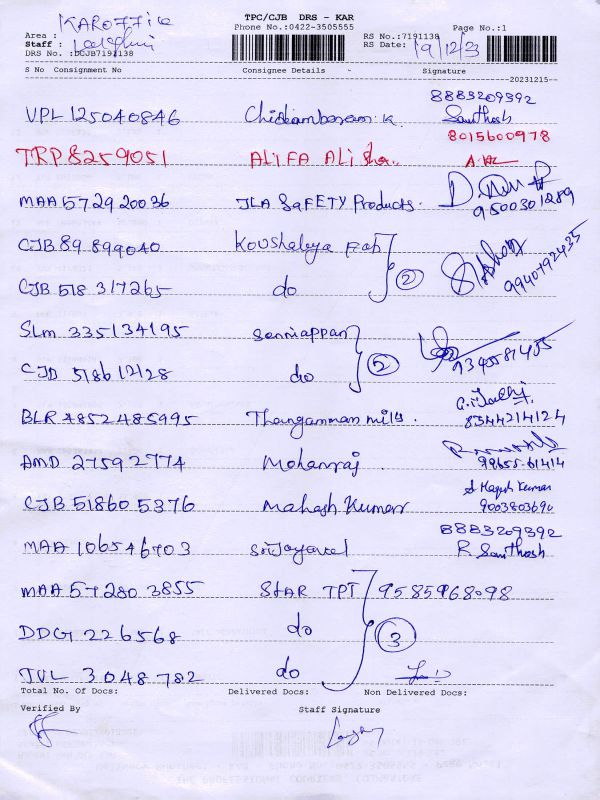 TPC/CJB DRS - KAR
Phone No.:0422-3505555
Page No.:1
RS No.:7191138
Area : KAROFFICE
Staff :
RS Date: 19/12/23
DRS No. :DCJB7191138
S No Consignment No Consignee Details - Signature
20231215--
8883209392
VPL 125040846 Chidambaram.K Santhosh
8015600978
TRP 8259051 ALIFA ALi Sha.
MAA 572920036 JLA SaFETY Products. 9500301289
CJB 89899040 Koushalya Fab 2 9940792435
CJB 518317265 do
Slm 335134195 Senniappan
CJD 518612128 do 2 9345581455
BLR 4852485995 Thangamman mills. 8344214124
AMD 27592774 Mohanraj. 99655-61414
CJB 518605376 Mahesh Kumar S Magesh Kumar
9003803690
8883209392
MAA 106546703 Srijayavel R. Santhosh
MAA 572803855 STAR TPT 9585968098
DDG 226568 do 3
TVL 3048782 do
Total No. Of Docs: Delivered Docs: Non Delivered Docs:
Verified By Staff Signature